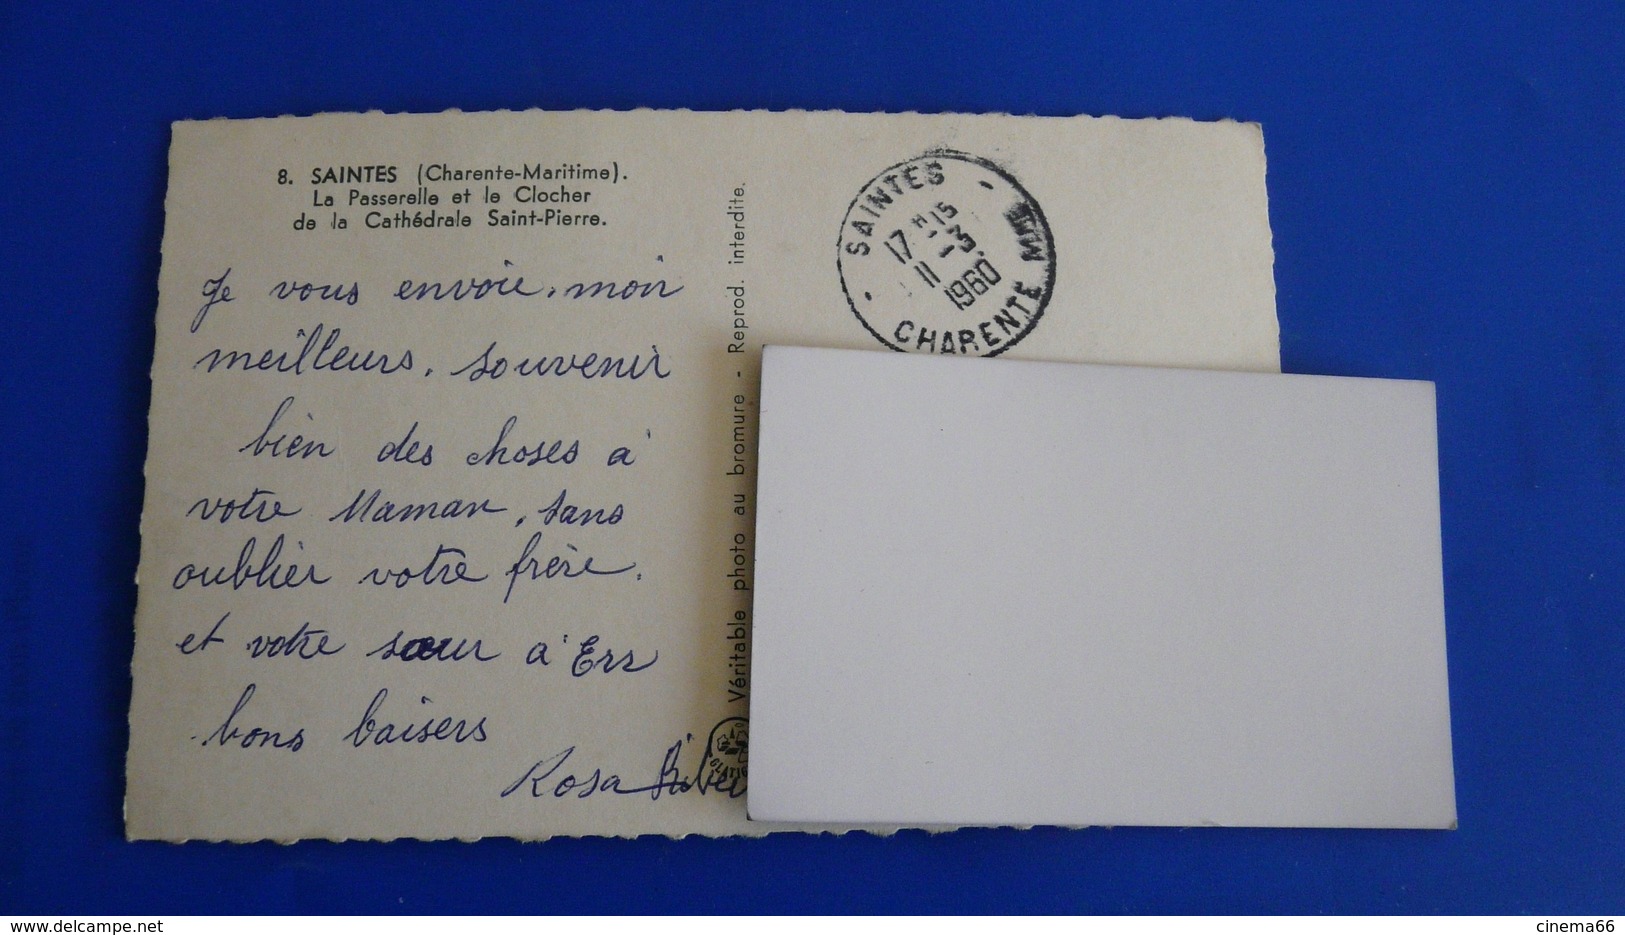 8. SAINTES (Charente-Maritime).
La Passerelle et le Clocher
de la Cathédrale Saint-Pierre.
Je vous envoie, mon
meilleurs, souvenir
bien des choses à
votre Maman, sans
oublier votre frère,
et votre sœur à Err
bons baisers
Rosa
Véritable photo au bromure - Reprod. interdite.
SAINTES
17 H 15
11 - 3
1960
CHARENTE MME
cinema66